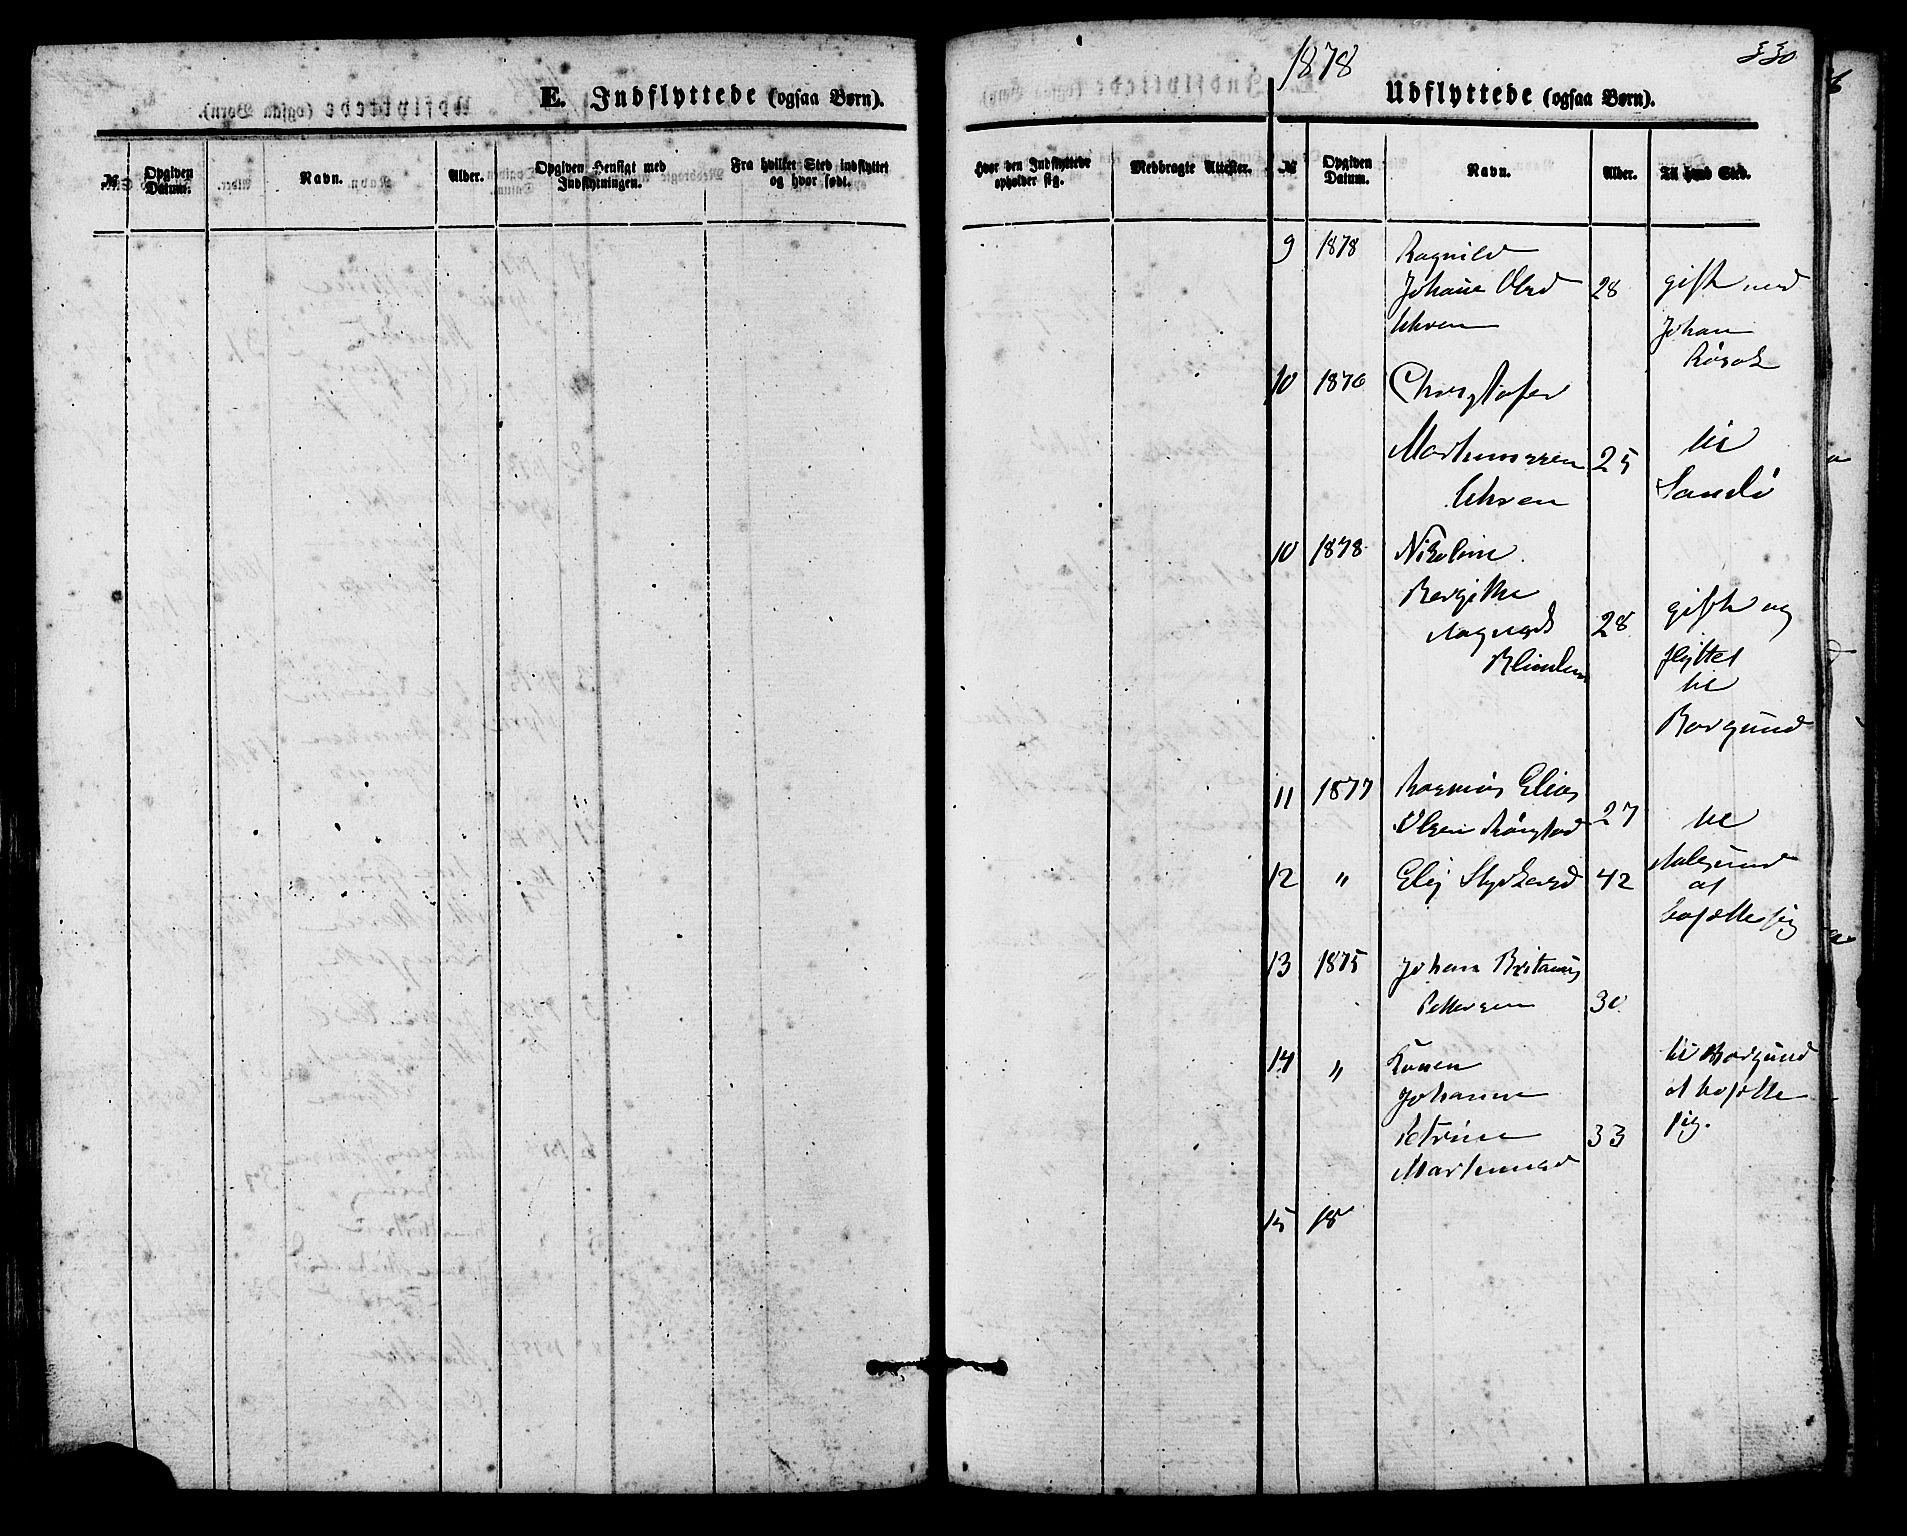 E. Indflyttede (ogsaa Børn).
№
Opgiven Datum.
Navn.
Alder.
Opgiven Hensigt med Indflytningen.
Fra hvilket Sted indflyttet og hvor født.
1878
330
Udflyttede (ogsaa Børn).
Hvor den Indflyttede opholder sig.
Medbragte Attester.
№
Opgiven Datum.
Navn.
Alder.
Til hvad Sted.
9 1878 Ragnild
Johane Olsd 28 gift med
Johan
10 1876
Martinussen 25 til
Sandö
10 1878 Nikoline
Bergitte
28 gift og
flyttet
til
Borgund
11 1877 Rasmus Elias
Olsen 27 til
12 " Elij 42 Aalesund
at
bosætte sig
13 1875 Johan
Pettersen 30
14 " Johanne til Borgund
at bosætte
Petrine 33 sig.
Martinusd
15 18